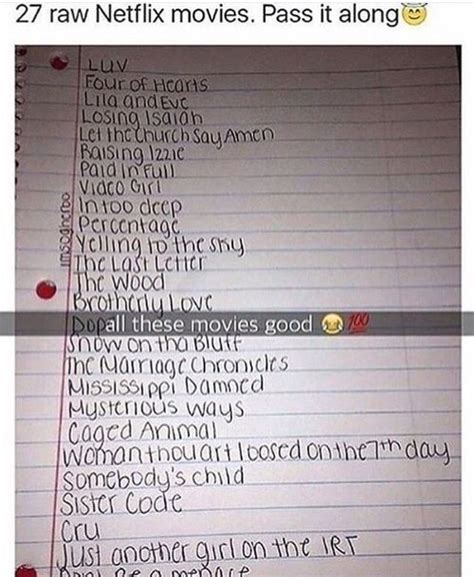 27 raw Netflix movies. Pass it along😇
LUV
Four of Hearts
Lila and Eve
Losing Isaiah
Let the Church Say Amen
Raising Izzie
Paid in Full
Video Girl
In too deep
Percentage
Yelling to the sky
The Last Letter
The Wood
Brotherly Love
Dop
all these movies good 😂 💯
Snow on tha Bluff
The Marriage Chronicles
Mississippi Damned
Mysterious ways
Caged Animal
Woman thou art loosed on the 7th day
Somebody's child
Sister Code
Cru
Just another girl on the IRT